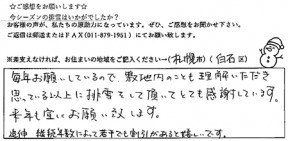 ☆ご感想をお願いします☆
今シーズンの排雪はいかがでしたか？
お客様の声が、私たちの原動力になっています。ぜひ、ご感想をお聞かせ下さい。
ご返信は郵送またはFAX(011-879-1951)にてお願い致します。
※差支えなければ、お住まいの地域をご記入ください→(札幌市)(白石区)
毎年お願いしているので、敷地内のことも理解いただき
思っている以上に排雪をして頂いてとても感謝しています。
来年も宜しくお願い致します。
追伸 継続年数によって若干でも割引があると嬉しいです。